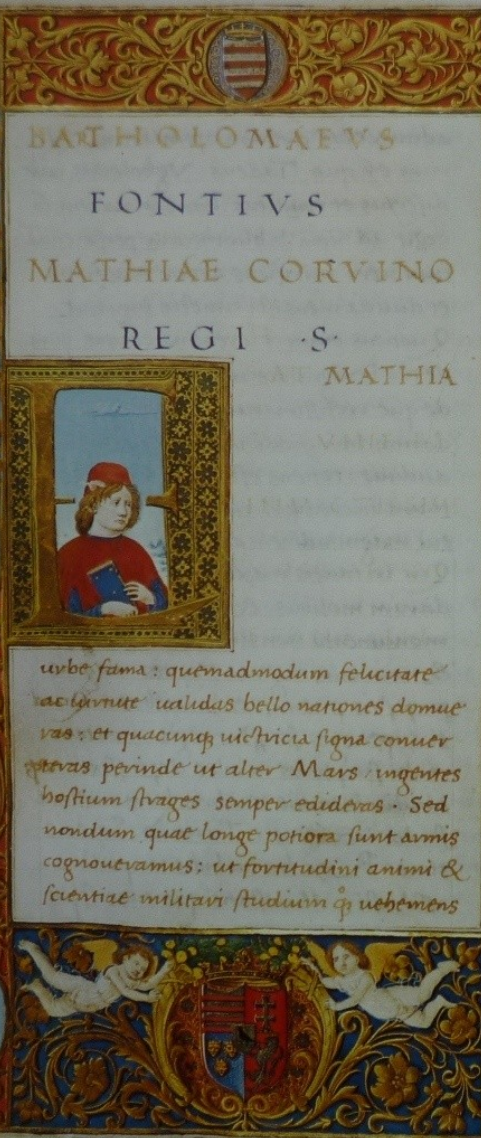 BARTHOLOMAEVS
FONTIVS
MATHIAE CORVINO
REGI ·S·
MATHIA
urbe fama: quemadmodum felicitate
ac virtute validas bello nationes domue
ras: et quacunq; victricia signa conver
teras perinde ut alter Mars ingentes
hostium strages semper edideras. Sed
nondum quae longe potiora sunt armis
cognoveramus: ut fortitudini animi &
scientiae militari studium q̊; vehemens